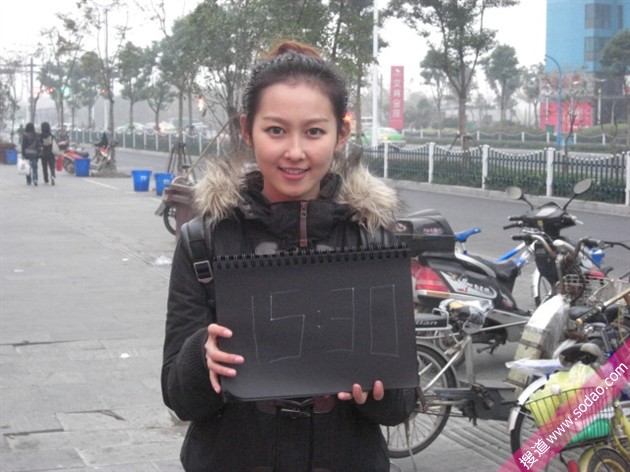 15:30
搜道 www.sodao.com